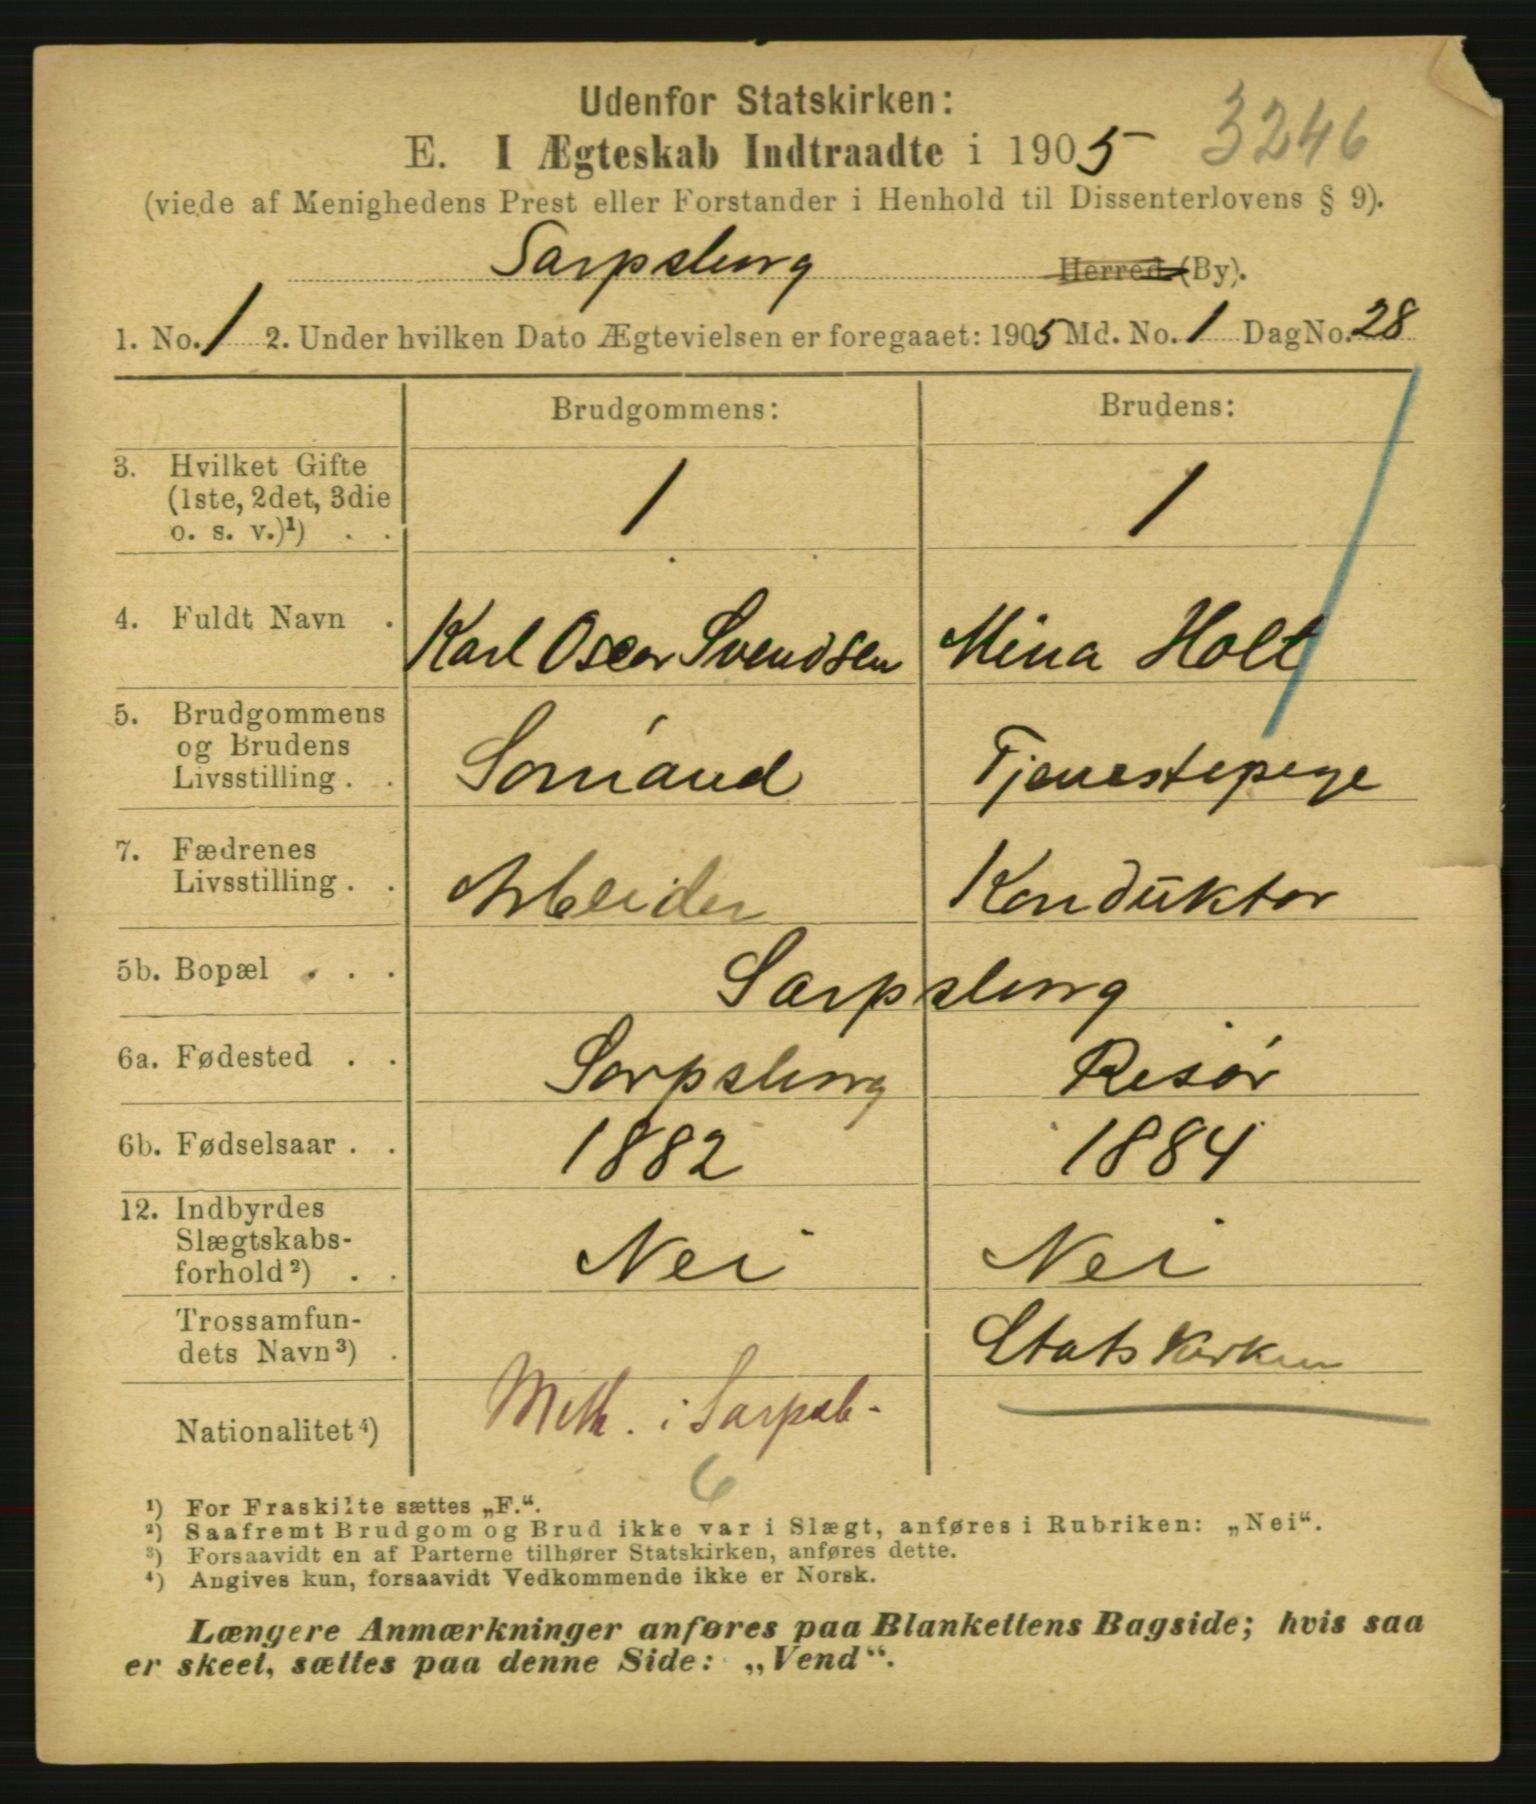 Udenfor Statskirken:
E. I Ægteskab Indtraadte i 1905 3246
(viede af Menighedens Prest eller Forstander i Henhold til Dissenterlovens § 9).
Sarpsborg Herred (By).
1. No. 1 2. Under hvilken Dato Ægtevielsen er foregaaet: 1905 Md. No. 1 Dag No. 28
Brudgommens: Brudens:
3. Hvilket Gifte
(1ste, 2det, 3die
o. s. v.)¹) . . 1 1
4. Fuldt Navn . Karl Oscar Svendsen Mina Holt
5. Brudgommens
og Brudens
Livsstilling . . Sømand Tjenestepige
7. Fædrenes
Livsstilling . . Arbeider Konduktør
5b. Bopæl . . . Sarpsborg
6a. Fødested . . Sarpsborg Risør
6b. Fødselsaar . . 1882 1884
12. Indbyrdes
Slægtskabs-
forhold²) . . Nei Nei
Trossamfun-
dets Navn³) . Meth. i Sarpsb. Statskirken
Nationalitet⁴)
6
¹) For Fraskilte sættes „F.“.
²) Saafremt Brudgom og Brud ikke var i Slægt, anføres i Rubriken: „Nei“.
³) Forsaavidt en af Parterne tilhører Statskirken, anføres dette.
⁴) Angives kun, forsaavidt Vedkommende ikke er Norsk.
Længere Anmærkninger anføres paa Blankettens Bagside; hvis saa
er skeet, sættes paa denne Side: „Vend“.